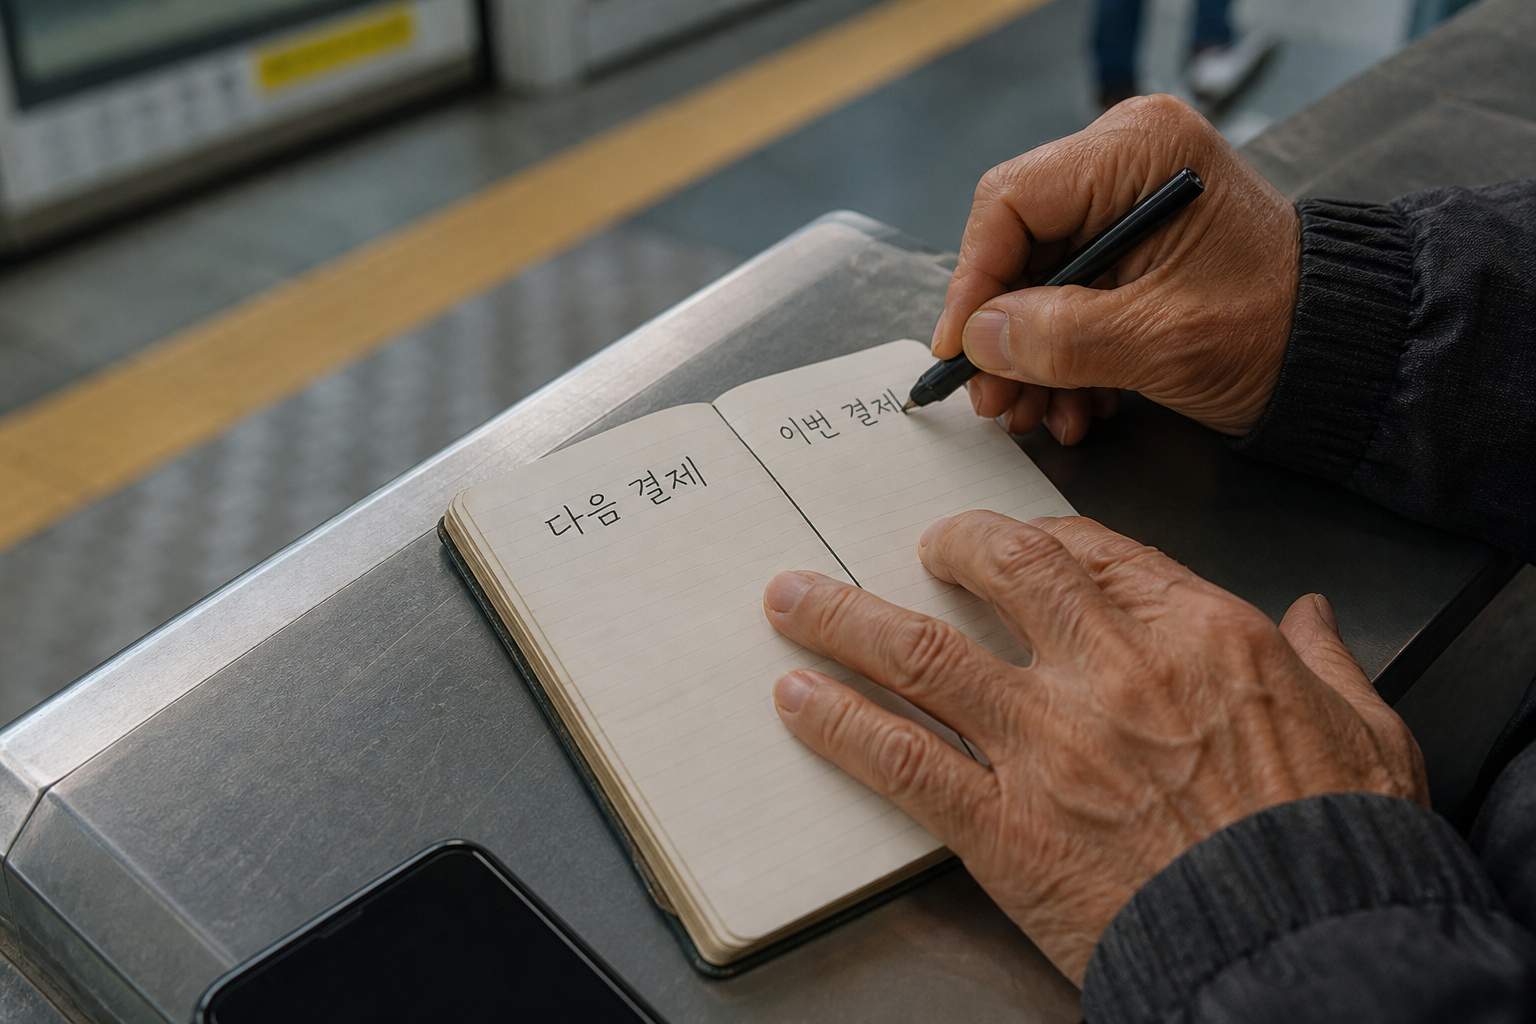 다음 결제
이번 결제